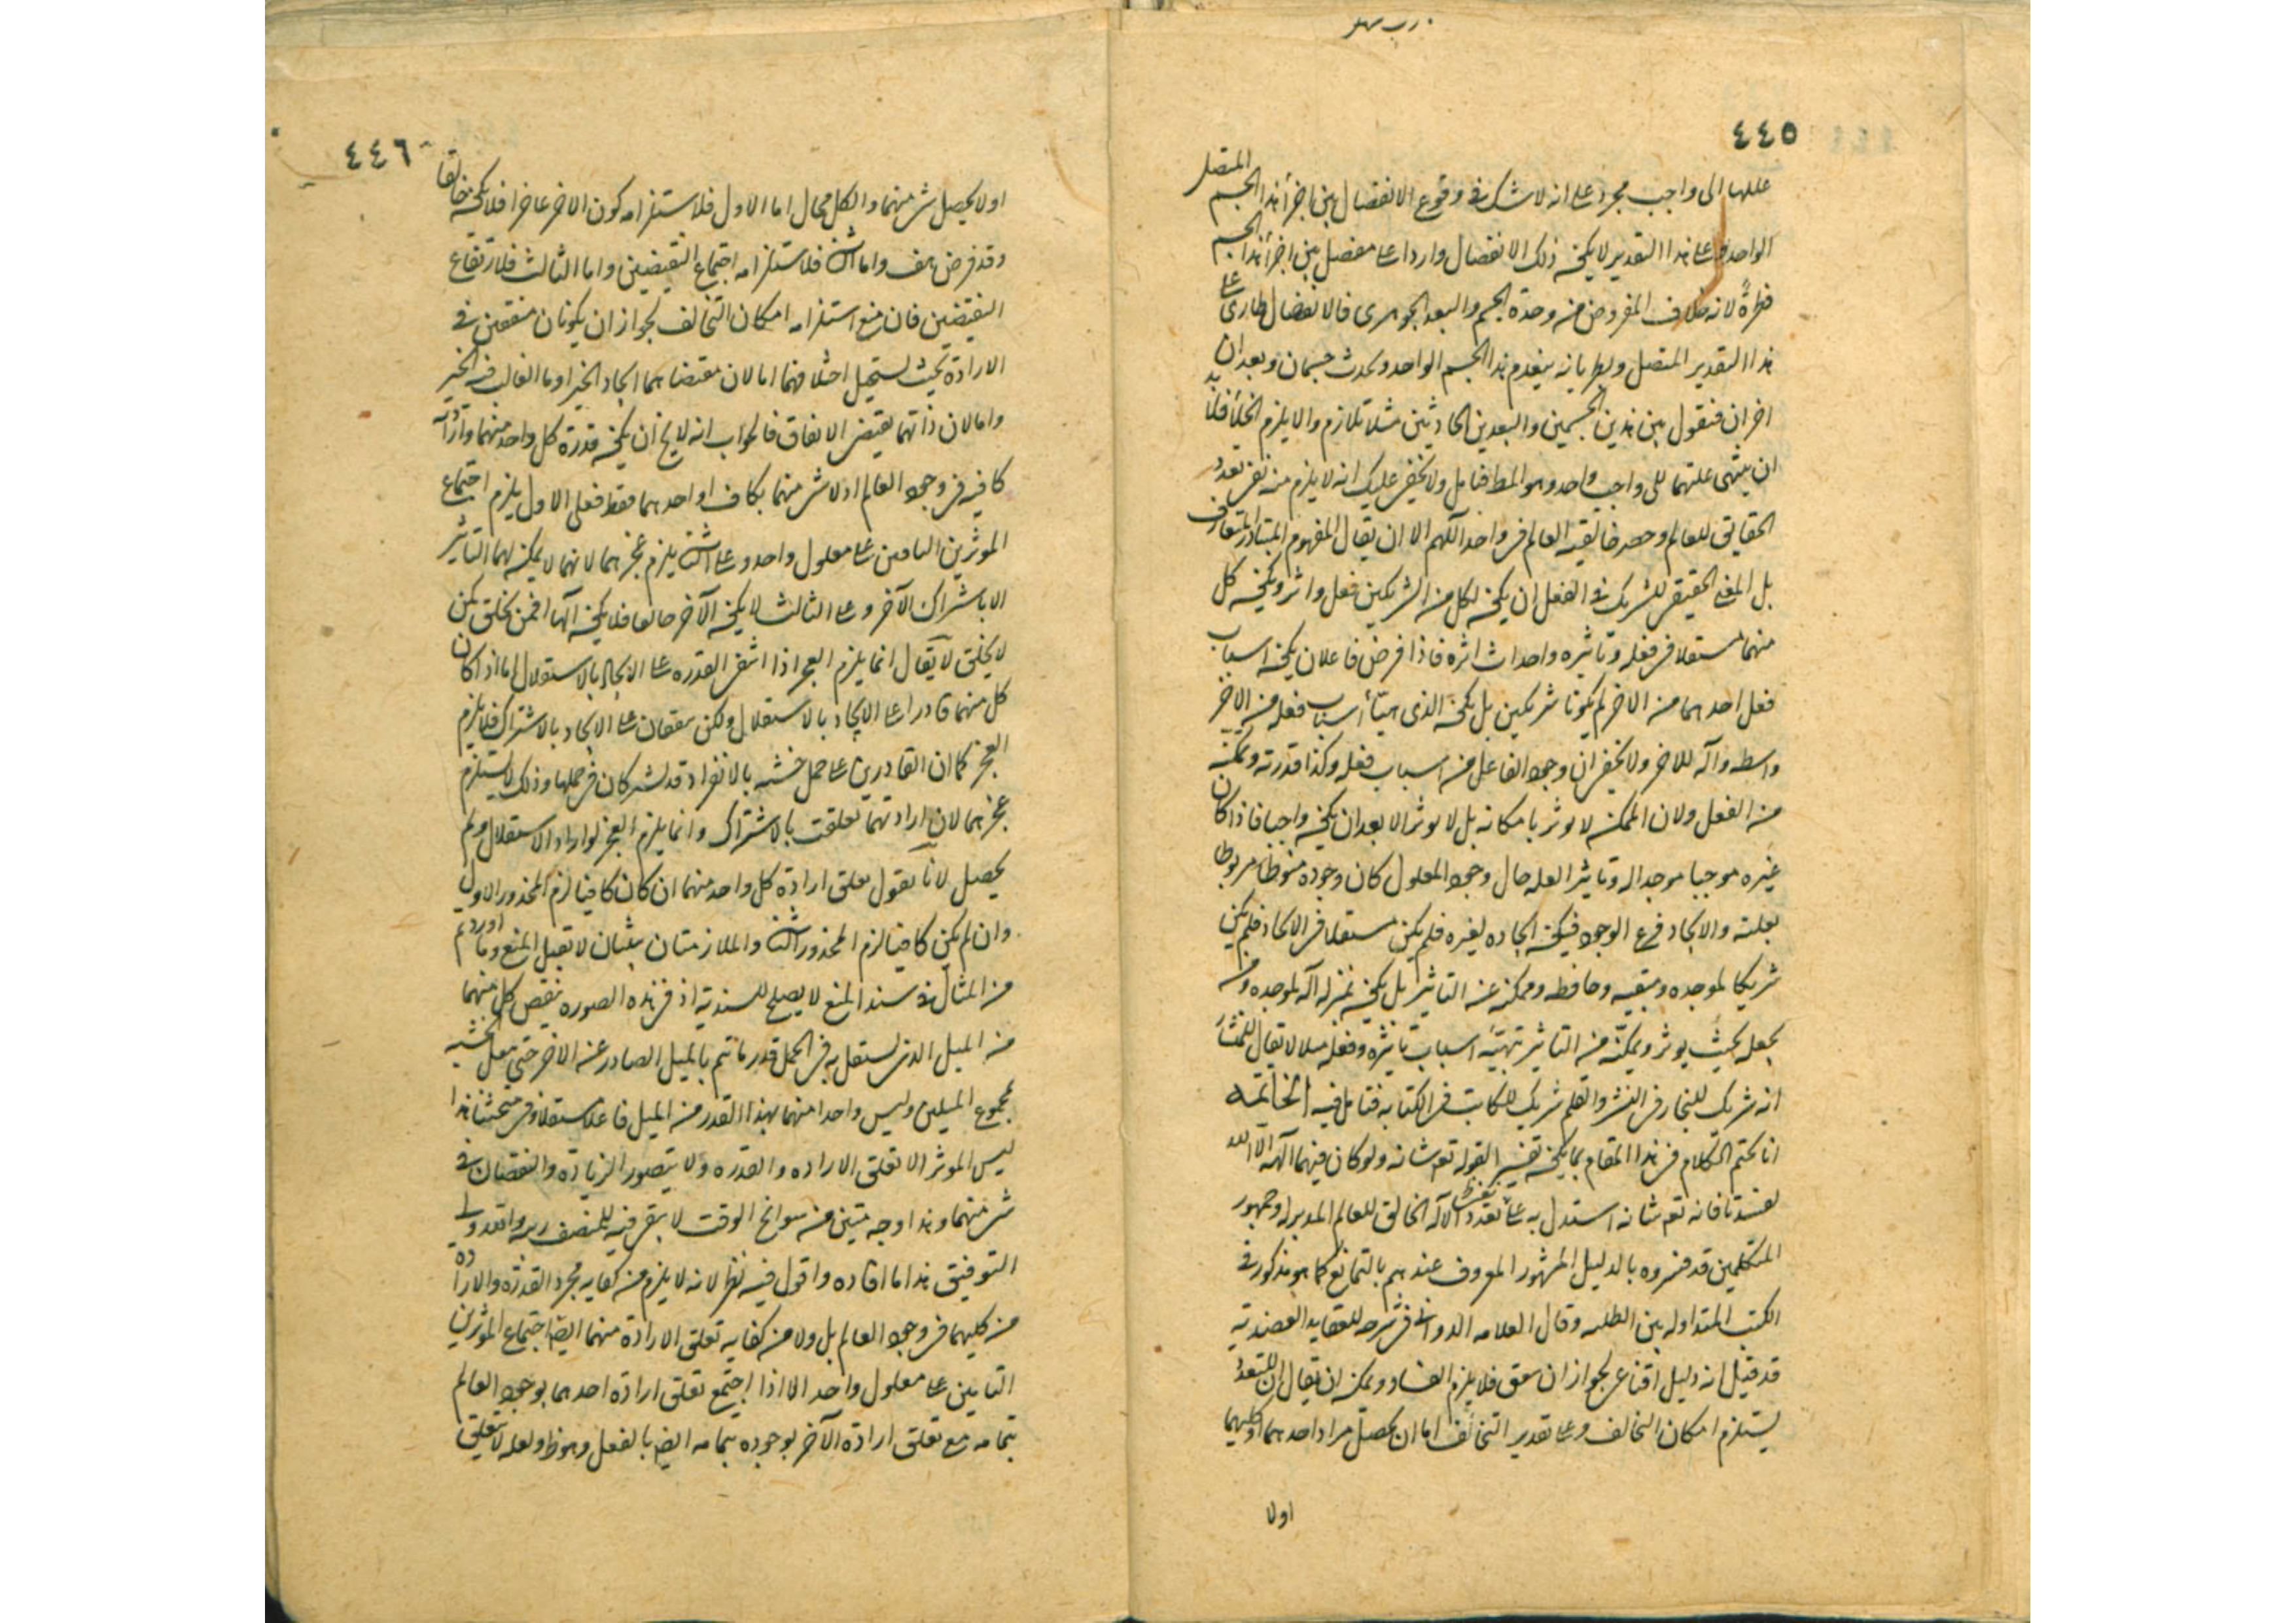 ٤٤٥
عللها الى واجب مجرد على انه لا شك فى وقوع الانفصال بين اجزأ هذا الجسم المتصل
الواحد و على هذا التقدير لا يكون ذلك الانفصال واردا على مفصل بين اجزأ هذا الجسم
فطرةً لانه خلاف المفروض من وحدة الجسم والبعد الجوهرى فالانفصال طارى على
هذا التقدير المتصل وبطريانه ينعدم هذا الجسم الواحد ويحدث جسمان وبعدان
اخران فنقول بين هذين الجسمين والبعدين الحادثين مثلا تلازم والا يلزم الخلأ فلا بد
ان ينتهى علتهما الى واجب واحد وهو المط فتامل ولا يخفى عليك انه لا يلزم منه نفى تعدد
الخالق للعالم وحصر خالقية العالم فى واحد اللهم الا ان يقال المفهوم المتبادر المتعارف
بل المعنى الحقيقى للشريك فى الفعل ان يكون لكل من الشريكين فعل واثر ويكون كل
منهما مستقلا فى فعله وتاثيره واحداث اثره فاذا فرض فاعلان يكون اسباب
فعل احدهما من الاخر لم يكونا شريكين بل يكون الذى هيّأ اسباب فعله من الاخر
واسطه وآلة للاخر ولا يخفى ان وجود الفاعل من اسباب فعله وكذا قدرته وتمكنه
من الفعل ولان الممكن لا يوثر بامكانه بل لا يوثر الا بعد ان يكون واجبا فاذا كان
غيره موجبا موجدا له وتاثير العله حال وجود المعلول كان وجوده منوطا مربوطا
بعلته والايجاد فرع الوجود فيكون ايجاده لغيره فلم يكن مستقلا فى الايجاد فلم يكن
شريكا لموجده ومبقيه وحافظه وممكنه عن التاثير بل يكون بمنزلة آله لموجده ومن
يجعله بحيث يوثر ويمكّنه من التاثير بتهيئة اسباب تاثيره وفعله مثلا لا يقال للمنشار
انه شريك للنجار فى النشر والقلم شريك للكاتب فى الكتابه فتامل فيه الخاتمه
انا نختم الكلام فى هذا المقام بما يكون تفسير القوله تعم شانه ولو كان فيهما آلهة الا الله
لفسدتا فانه تعم شانه استدل به على نفى تعدد الآله الخالق للعالم المدبر له وجمهور
المتكلمين قد فسروه بالدليل المشهور المعروف عندهم بالتمانع كما هو مذكور فى
الكتب المتداوله بين الطلبه وقال العلامه الدوانى فى شرحه للعقايد العضديه
قد قيل انه دليل اقناعى لجواز ان يتفق فلا يلزم الفساد ويمكن ان يقال ان التعدد
يستلزم امكان التخالف وعلى تقدير التخالف اما ان يحصل مراد احدهما او كليهما
اولا
٤٤٦
اولا يحصل شى منهما والكل محال اما الاول فلاستلزامه كون الاخر عاجزا فلا يكون خالقا
وقد فرض هف واما الثانى فلاستلزامه اجتماع النقيضين واما الثالث فلارتفاع
النقيضين فان منع استلزامه امكان التخالف لجواز ان يكونان متفقين فى
الارادة بحيث يستحيل اختلافهما اما لان مقتضاهما ايجاد الخير او ما الغالب فيه الخير
واما لان ذاتهما يقتضى الاتفاق فالجواب انه لا يخ ان يكون قدرة كل واحد منهما وارادته
كافيه فى وجود العالم اولا شى منهما بكاف او احدهما فقط فعلى الاول يلزم اجتماع
الموثرين التامين على معلول واحد وعلى الثانى يلزم عجزهما لانهما لا يمكن لهما التاثير
الا باشتراك الآخر وعلى الثالث لا يكون الآخر خالقا فلا يكون آلها افمن يخلق كمن
لا يخلق لا يقال انما يلزم العجز اذا انتفى القدرة على الايجاد بالاستقلال اما اذا كان
كل منهما قادرا على الايجاد بالاستقلال ولكن يتفقان على الايجاد بالاشتراك فلا يلزم
العجز كما ان القادرين على حمل خشبه بالانفراد قد يشتركان فى حملها وذلك لا يستلزم
عجزهما لان ارادتهما تعلقت بالاشتراك وانما يلزم العجز لو ارادا الاستقلال ولم
يحصل لانا نقول تعلق ارادة كل واحد منهما ان كان كافيا لزم المحذور الاول
وان لم يكن كافيا لزم المحذور الثانى والملازمتان بينتان لا تقبل المنع وما اوردتم
من المثال فى سند المنع لا يصلح للسنديه اذ فى هذه الصوره ينقص كل منهما
من الميل الذى يستقل به فى الحمل قدر ما يتم بالميل الصادر عن الاخر حتى ينقل الخشبه
بمجموع الميلين وليس واحدا منهما بهذا القدر من الميل فاعلا مستقلا وفى مبحثنا هذا
ليس الموثر الا تعلق الاراده والقدره ولا يتصور الزيادة والنقصان فى
شى منهما وهذا وجه متين من سوانح الوقت لا يبقى فيه للمنصف ريبه والله ولى
التوفيق هذا ما افاده واقول فيه نظر لانه لا يلزم من كفايه مجرد القدره والارادة
من كليهما فى وجود العالم بل ولا من كفايه تعلق الارادة منهما ايضا اجتماع الموثرين
التامين على معلول واحد الا اذا اجتمع تعلق ارادة احدهما بوجود العالم
بتمامه مع تعلق ارادة الآخر بوجوده بتمامه ايضا بالفعل وهو ظ ولعله لا يتعلق